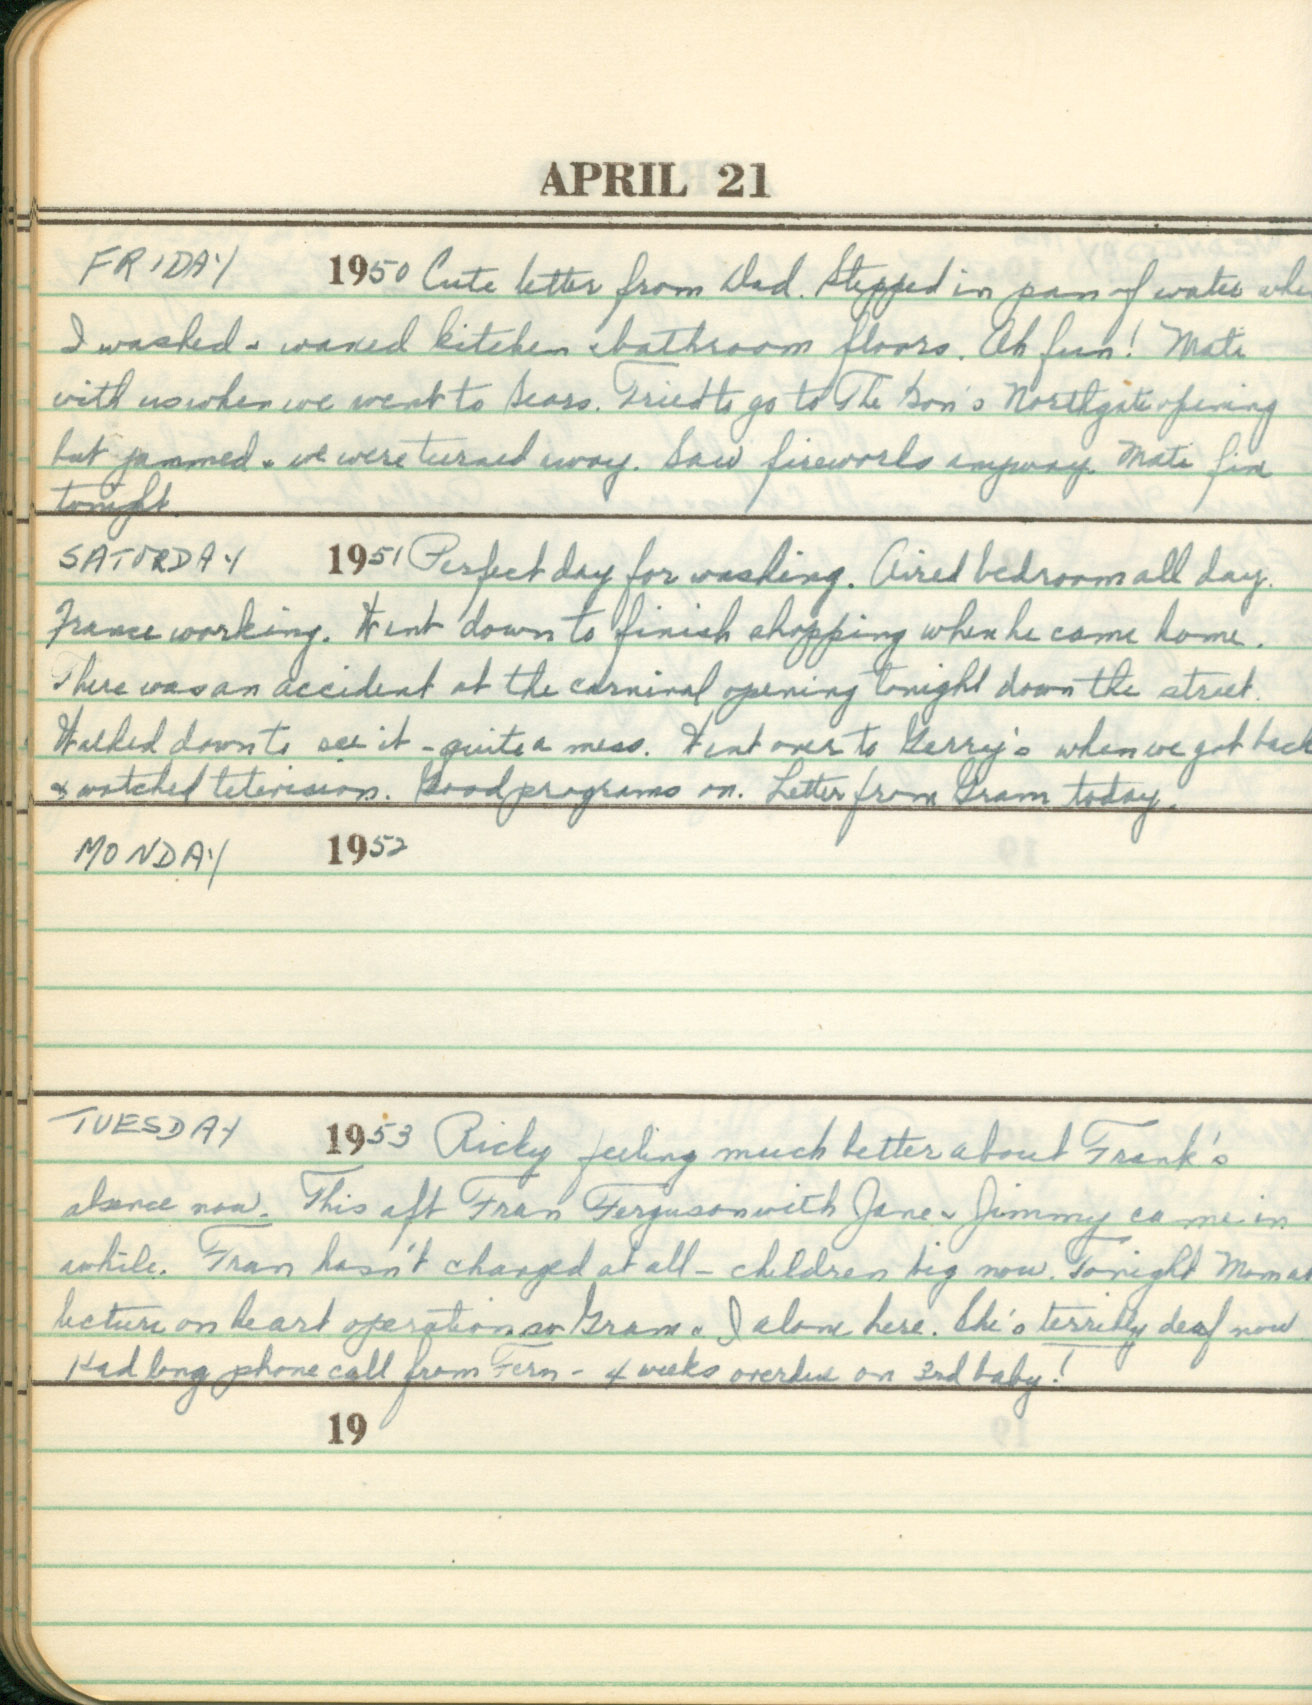 APRIL 21
FRIDAY 1950 Cute letter from Dad. Stepped in pan of water whe
I washed & waxed kitchen & bathroom floors. Oh fun! Mate
with us when we went to Sears. Tried to go to The Bon's Northgate opening
but jammed & we were turned away. Saw fireworks anyway. Mate fix
tonight.
SATURDAY 1951 Perfect day for washing. Aired bedroom all day.
France working. Went down to finish shopping when he came home.
There was an accident at the carnival opening tonight down the street.
Walked down to see it - quite a mess. Went over to Gerry's when we got back
& watched television. Good programs on. Letter from Gram today.
MONDAY 1952
TUESDAY 1953 Ricky feeling much better about Frank's
absence now. This aft Fran Ferguson with Jane & Jimmy came in
awhile. Fran hasn't changed at all - children big now. Tonight Mom at
lecture on heart operation so Gram & I alone here. She's terribly deaf now
Had long phone call from Fern - 4 weeks overdue on 3rd baby!
19